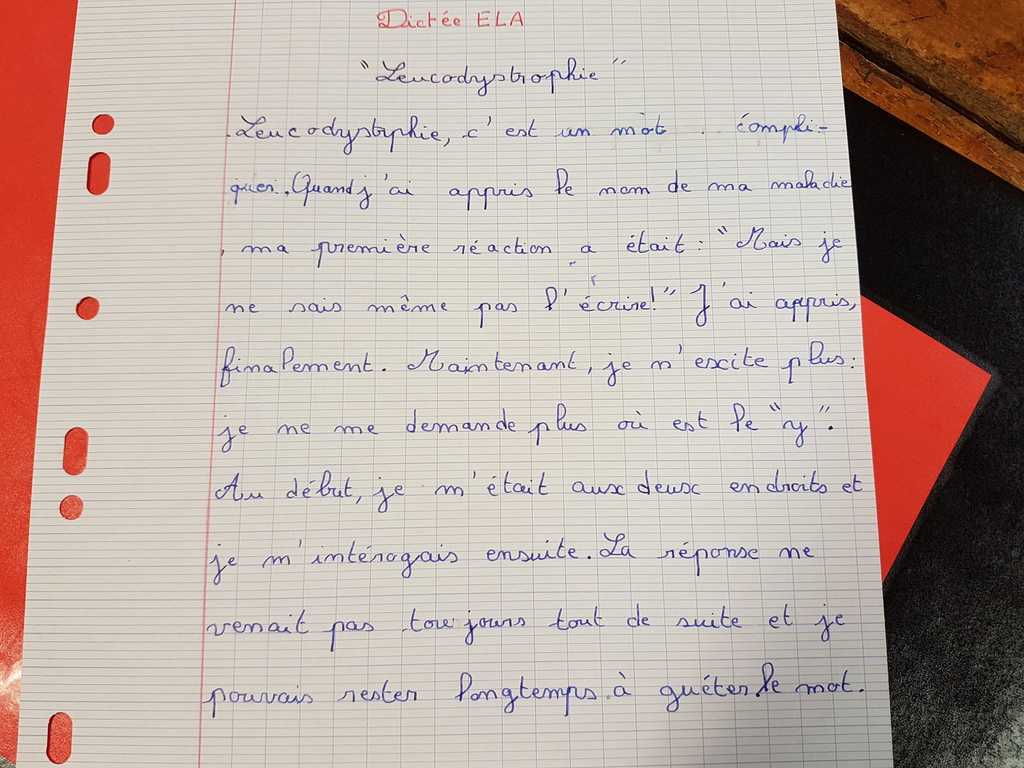 Dictée ELA
"Leucodystrophie"
Leucodystyphie, c'est un mot compli-
quer. Quand j'ai appris le nom de ma maladie
, ma première réaction a était : "Mais je
ne sais même pas l'écrire!" J'ai appris,
finalement. Maintenant, je n'excite plus :
je ne me demande plus où est le "y".
Au début, je m'était aux deux endroits et
je m'intérogais ensuite. La réponse ne
venait pas toujours tout de suite et je
pouvais rester longtemps à guéter le mot.